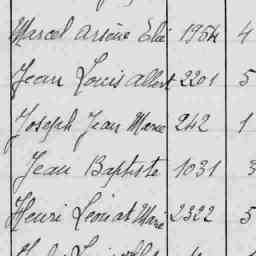 Marcel Arsène Elie 1964 4
Jean Louis Albert 2201 5
Joseph Jean Marie 242 1
Jean Baptiste 1031 3
Henri Léon at Marie 2322 5